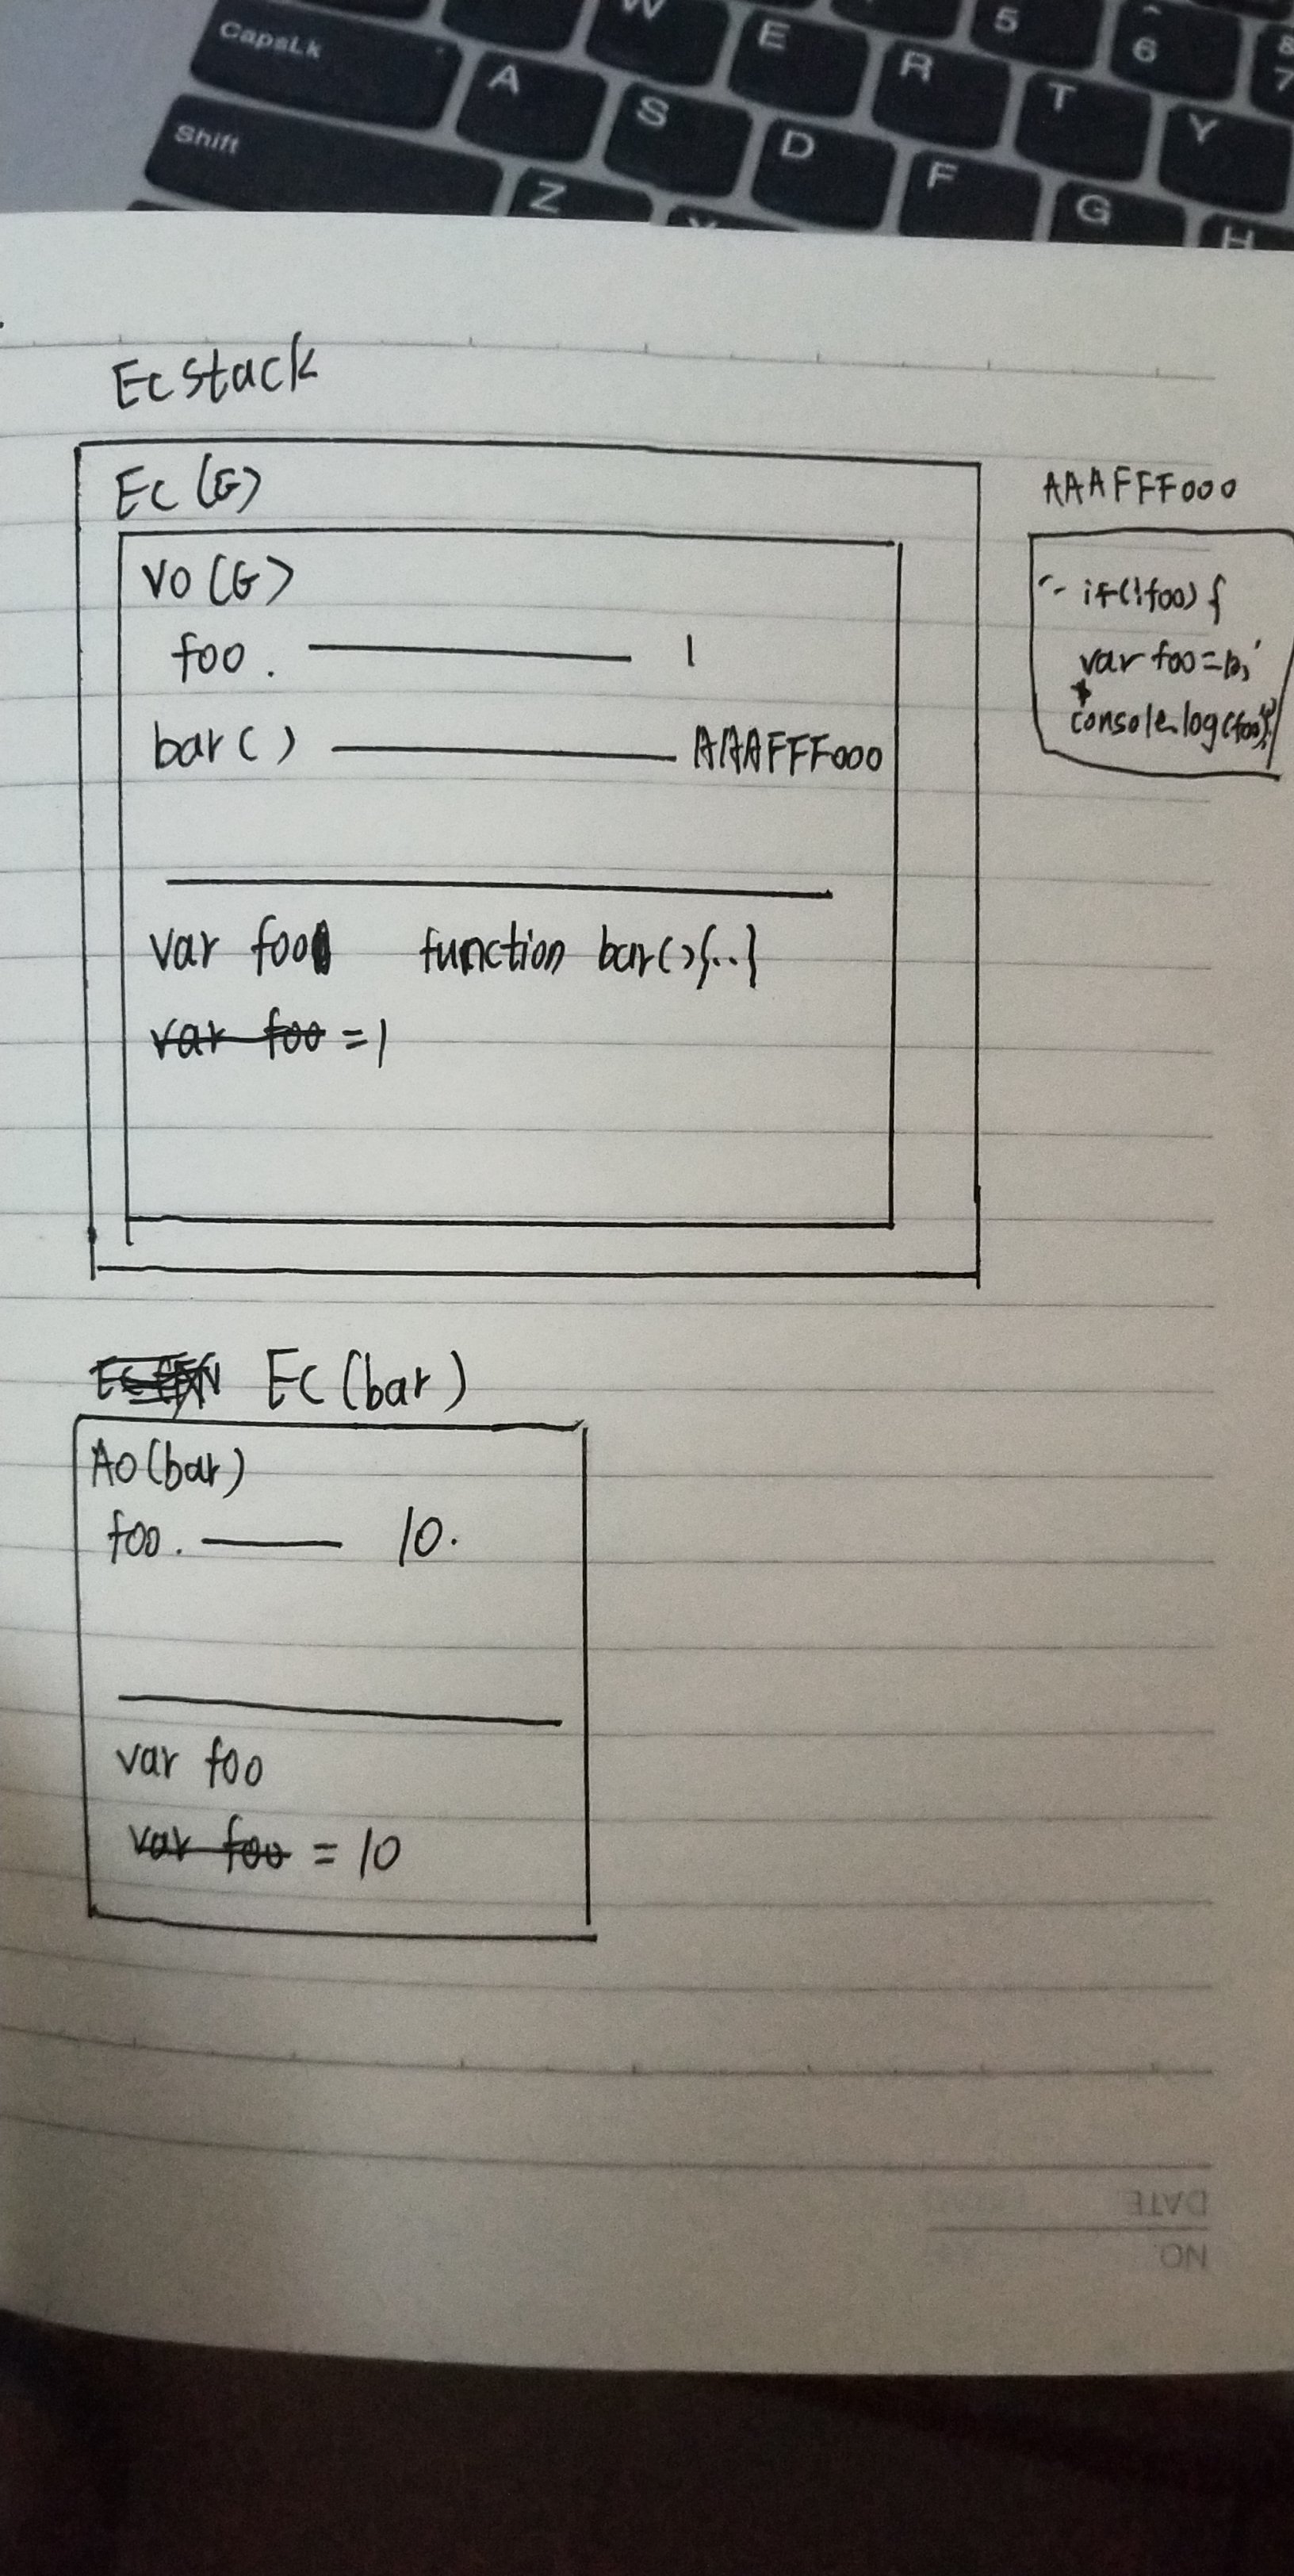 W E R 5 6 7
CapsLk A S D F T Y
Shift Z G H
Ec stack
Ec (G)
VO (G)
foo. 1
bar() AAAFFF000
var foo function bar(){..}
var foo = 1
AAAFFF000
if(!foo){
var foo=10;
console.log(foo)}
Ec (bar)
AO (bar)
foo. 10.
var foo
var foo = 10
DATE
NO.